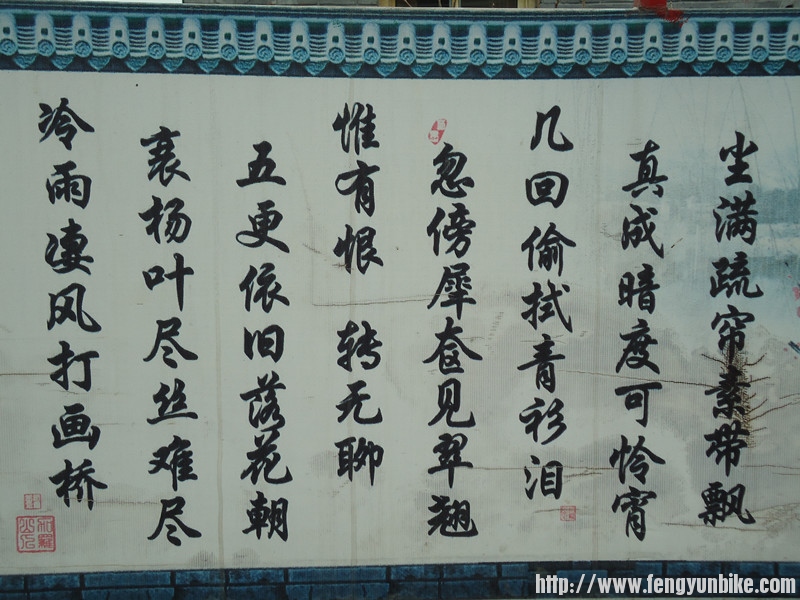 尘满疏帘素带飘
真成暗度可怜宵
几回偷拭青衫泪
忽傍犀奁见翠翘
惟有恨 转无聊
五更依旧落花朝
衰杨叶尽丝难尽
冷雨凄风打画桥
http://www.fengyunbike.com